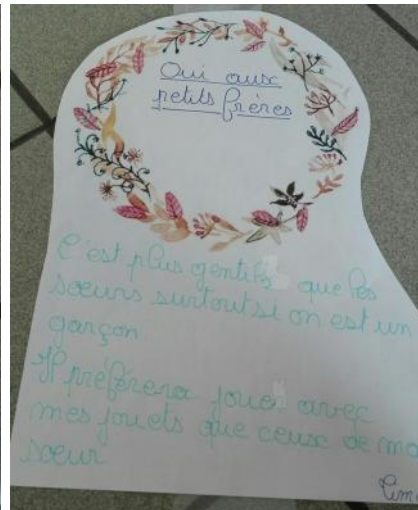 Oui aux
petits frères
C'est plus gentils que les
soeurs surtout si on est un
garçon.
Il préférera jouer avec
mes jouets que ceux de ma
soeur